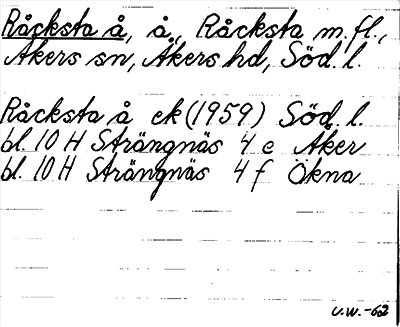 Råcksta å, å, Råcksta m.fl.,
Åkers sn, Åkers hd, Söd. l.
Råcksta å ek (1959) Söd. l.
bl. 10 H Strängnäs 4 e Åker
bl. 10 H Strängnäs 4 f Ökna
U.W. -62